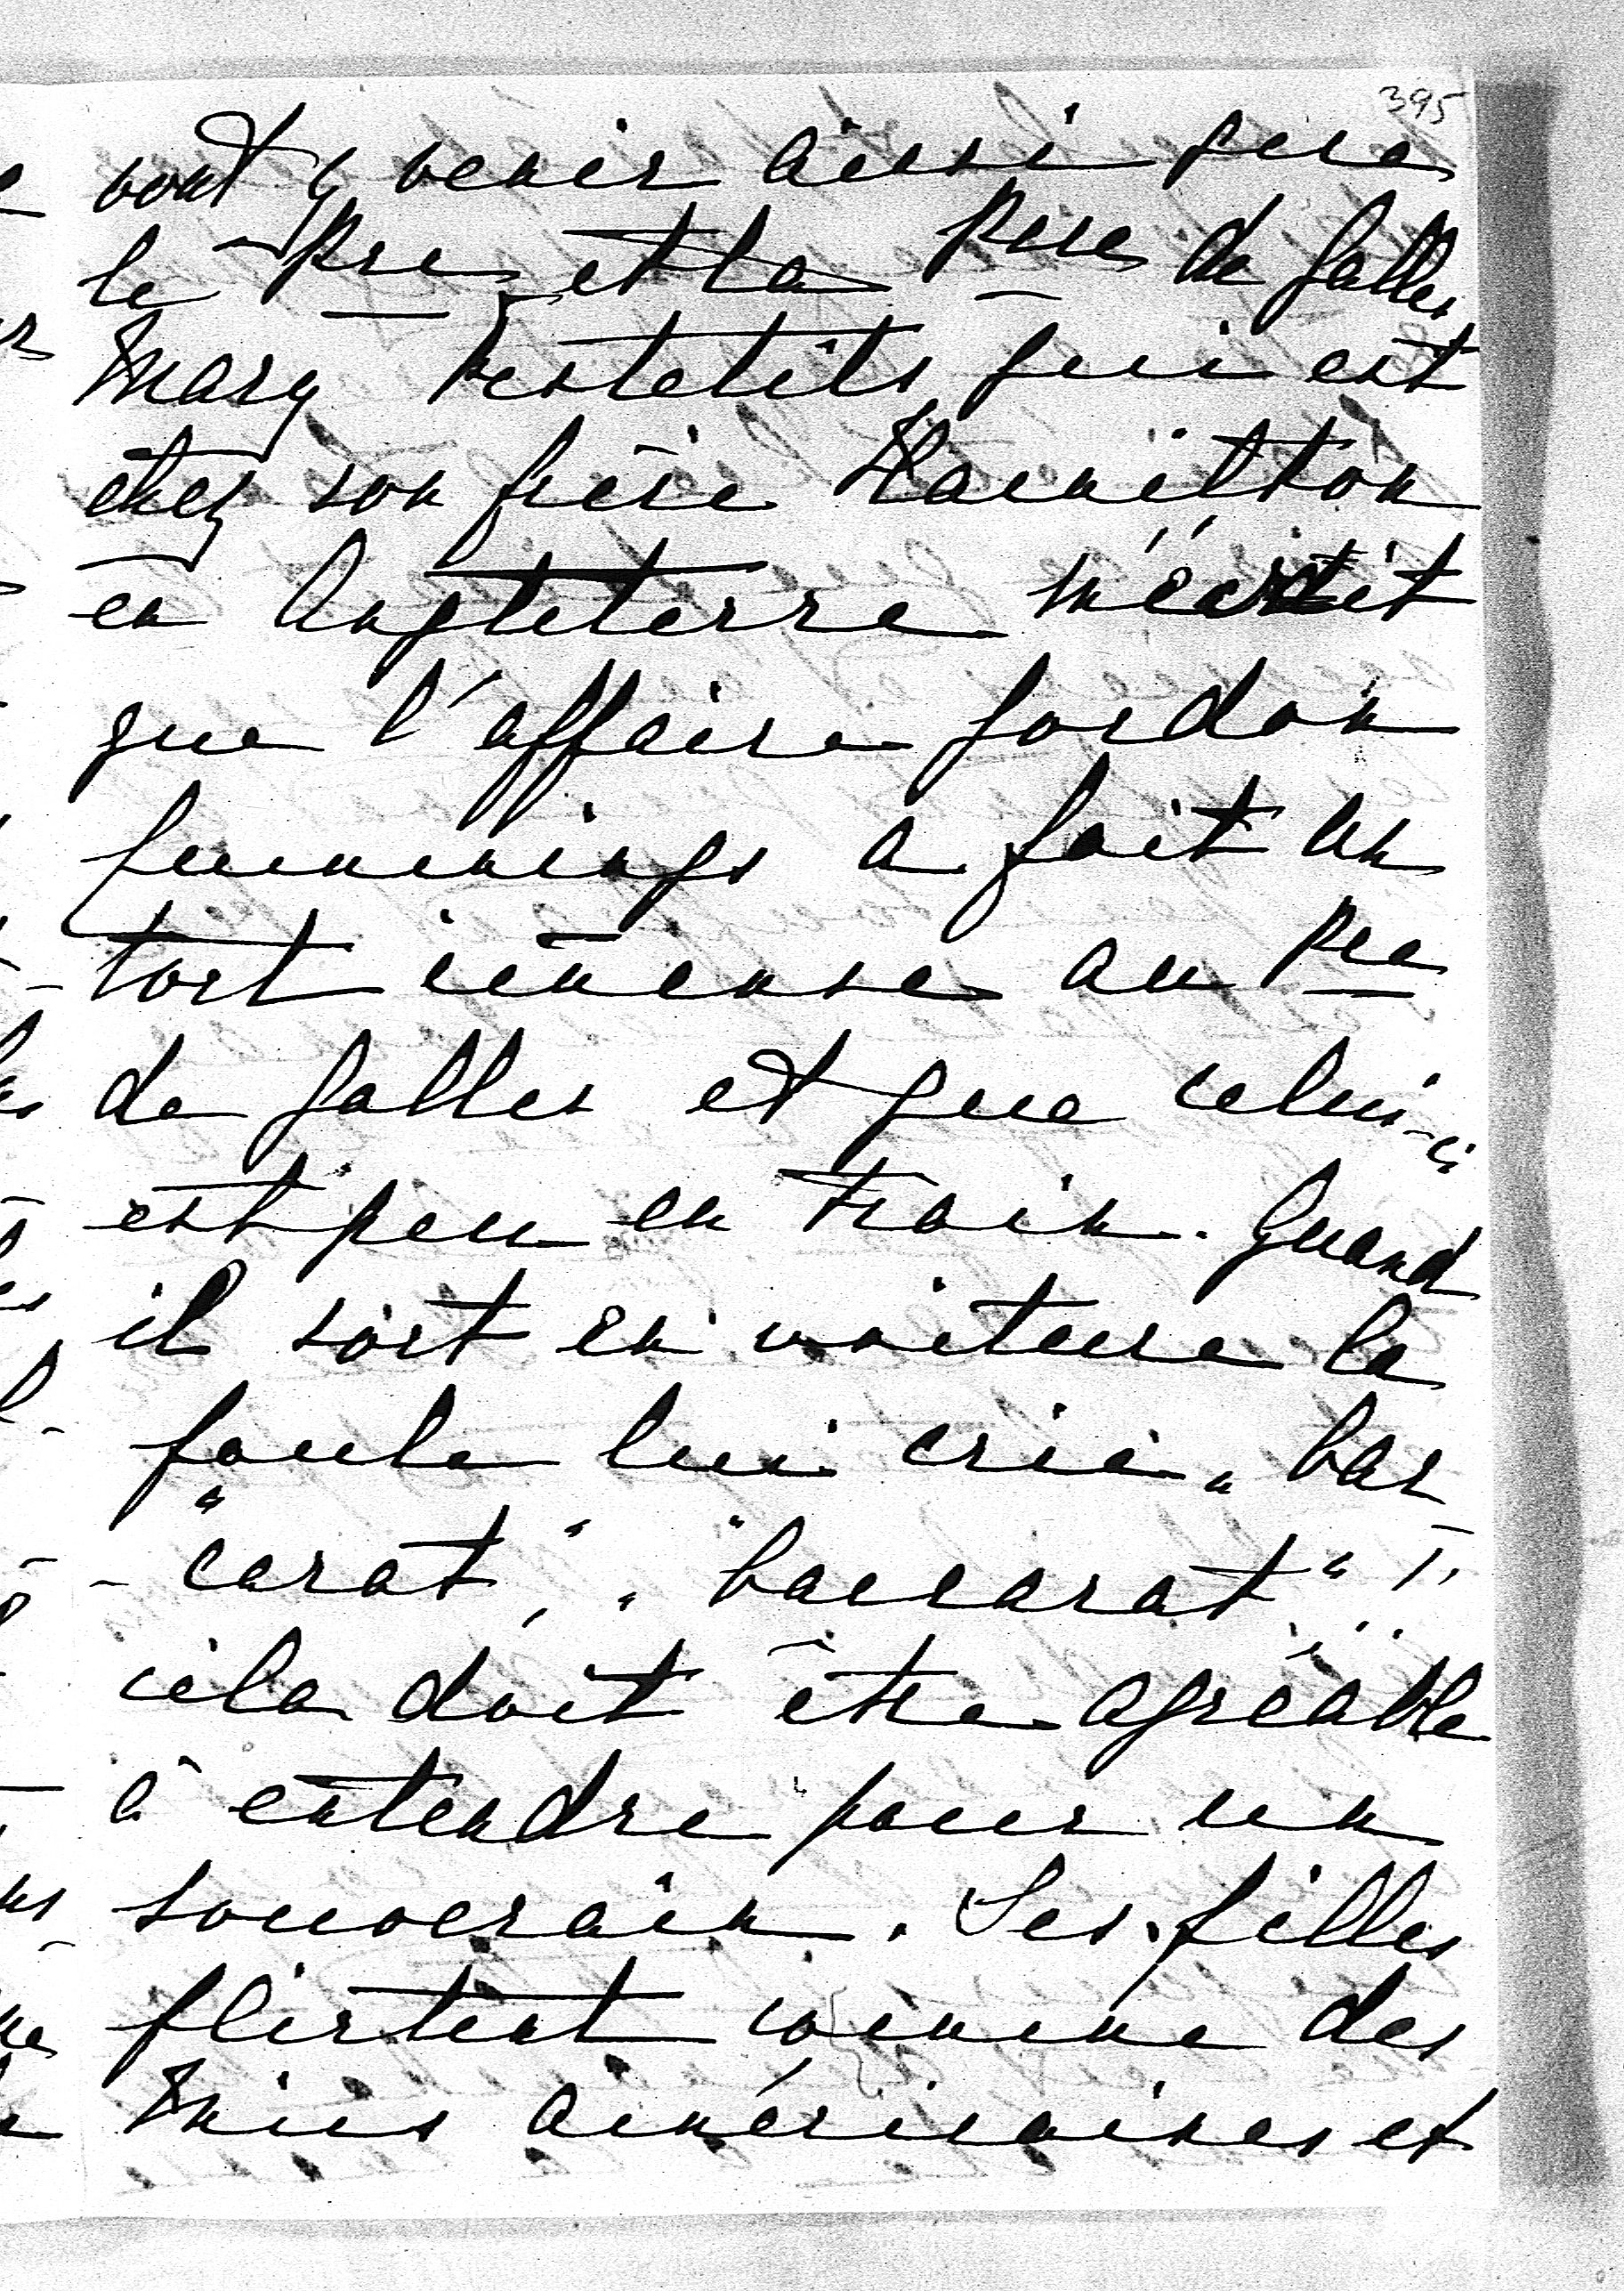 395
vont y venir ainsi que
le Pce et la Pcse de Galles
Mary Festetits qui est
chez son frère Hamilton
en Angleterre m'écrit
que l'affaire Gordon
Cummings a fait un
tort imense au Pce
de Galles et que celui-ci
est peu en train. Quand
il sort en voiture la
foule lui crie „bac
"carat", „baccarat" !
cela doit être agréable
à entendre pour un
souverain. Ses filles
flirtent comme des
Miss américaines et